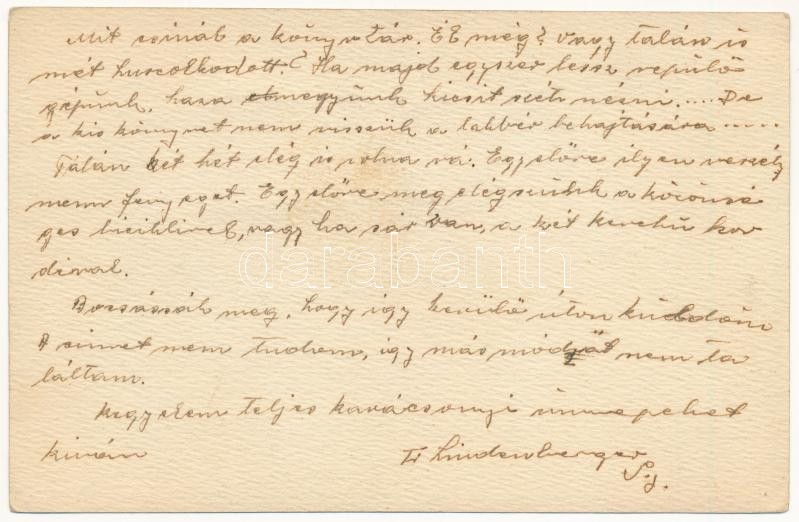 Mit csinál a könyvtár. Él még? Vagy talán is
mét huscolkodott? Ha majd egyszer lesz repülő
gépünk, haza elmegyünk kicsit szét nézni..... De
a kis könyvet nem visszük a lakbér behajtására ......
Talán két hét elég is volna rá. Egyelőre ilyen veszély
nem fenyeget. Egyelőre meg elégszünk a közönsé
ges biciklivel, vagy ha sár van, a két kerekű kor
dinal.
Bocsássák meg, hogy így kerülő úton küldöm
A címet nem tudom, így más módját nem ta
láltam.
Kegyelem teljes karácsonyi ünnepeket
kíván Fr Lindenberger
S.J.
darabanth